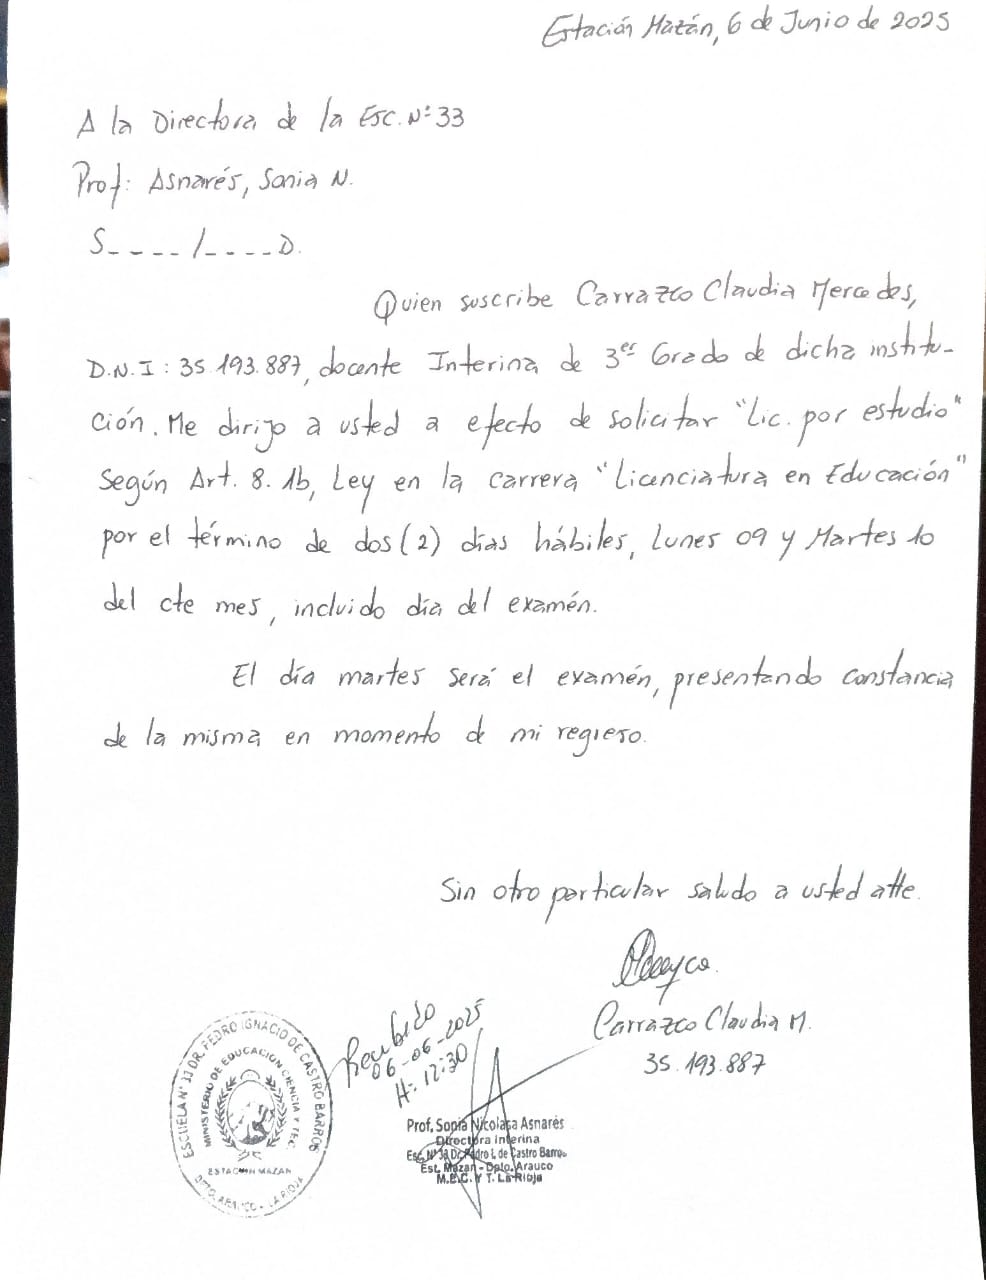 Estación Mazán, 6 de Junio de 2025
A la Directora de la Esc. N° 33
Prof: Asnarés, Sonia N.
S____/____D.
Quien suscribe Carrazco Claudia Mercedes,
D.N.I : 35.193.887, docente Interina de 3er Grado de dicha institu-
ción. Me dirijo a usted a efecto de solicitar "Lic. por estudio"
según Art. 8. 1b, Ley en la carrera "Licenciatura en Educación"
por el término de dos (2) días hábiles, lunes 09 y Martes 10
del cte mes, incluido día del examén.
El día martes será el examén, presentando constancia
de la misma en momento de mi regreso.
Sin otro particular saludo a usted atte.
Carrazco Claudia M.
35.193.887
Recibido
06-06-2025
H: 12:30
ESCUELA N° 33 DR. PEDRO IGNACIO DE CASTRO BARROS
MINISTERIO DE EDUCACION CIENCIA Y TEC.
ESTACION MAZAN
DPTO. ARAUCO - LA RIOJA
Prof. Sonia Nicolasa Asnarés
Directora Interina
Esc. N° 33 Dr. Pedro I. de Castro Barros
Est. Mazan - Dpto. Arauco
M.E.C. Y T. La Rioja